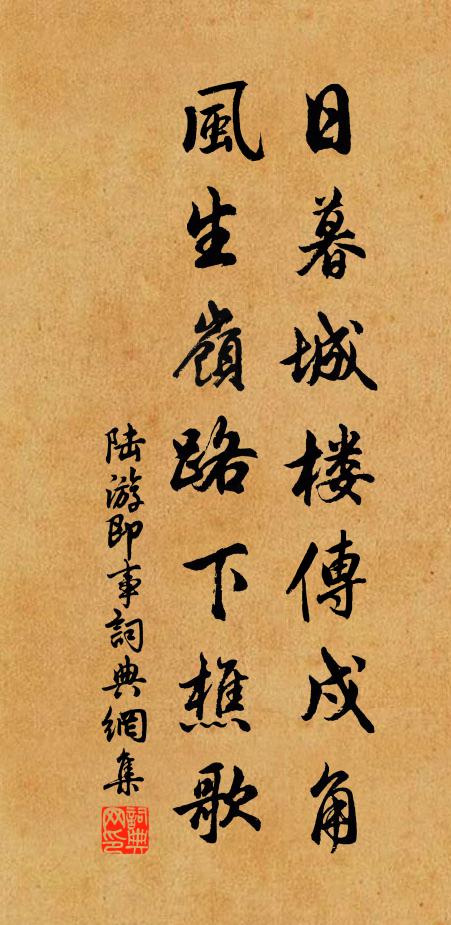 日暮城楼傳戍角
風生嶺路下樵歌
陆游即事詞典網集
詞典网印